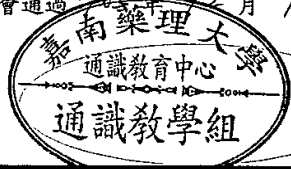 會通過 年 月
嘉南藥理大學
通識教育中心
通識教學組